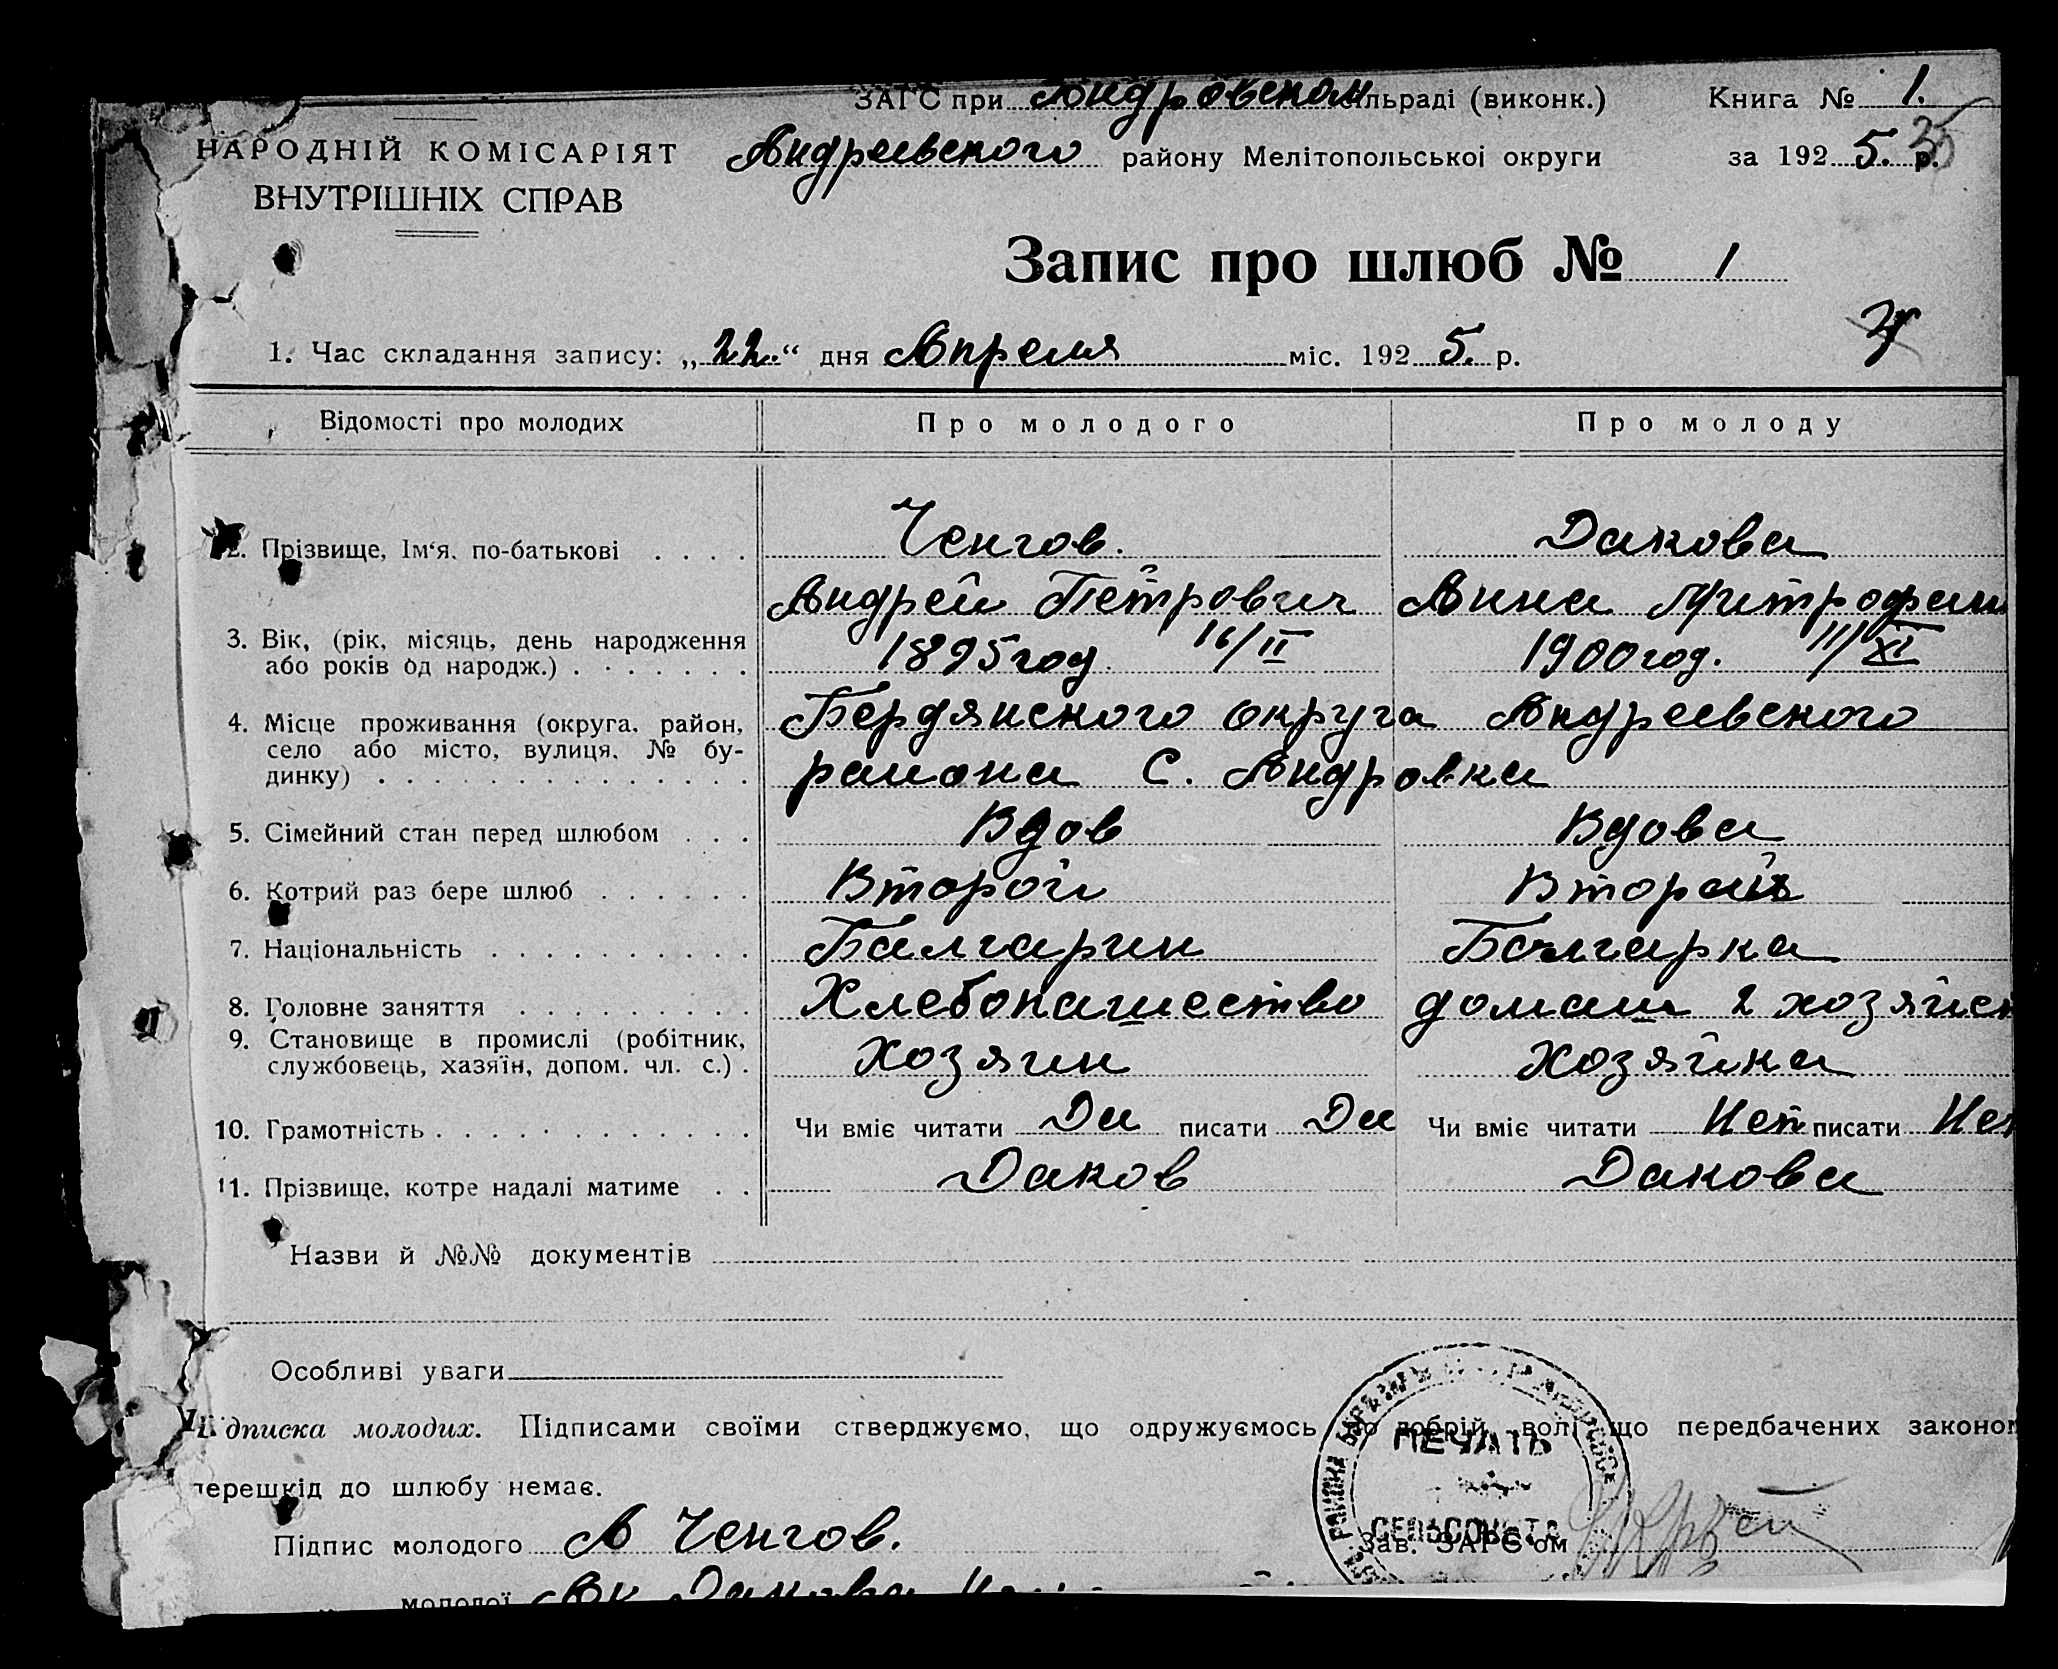 ЗАГС при Андровском сільраді (виконк.) Книга № 1.
НАРОДНІЙ КОМІСАРІЯТ Андреевского району Мелітопольської округи за 192 5. р.
ВНУТРІШНІХ СПРАВ
Запис про шлюб № 1
1. Час складання запису: „22“ дня Апреля міс. 192 5. р.
Відомості про молодих Про молодого Про молоду
2. Прізвище, Ім‘я, по-батькові . . . . Ченгов. Дакова
Андрей Петрович Анна Митрофан
3. Вік, (рік, місяць, день народження
або років од народж.) . . . . . . . 1895 год. 16/II 1900 год. 11/XI
4. Місце проживання (округа, район, Бердянского округа Андреевского
село або місто, вулиця, № бу-
динку) . . . . . . . . . . . . . района С. Андровка
5. Сімейний стан перед шлюбом . . . Вдов Вдова
6. Котрий раз бере шлюб . . . . . . Второй Вторай
7. Національність . . . . . . . . . . Балгарин Балгарка
8. Головне заняття . . . . . . . . . Хлебопашество домаш 2 хозяйст
9. Становище в промислі (робітник,
службовець, хазяїн, допом. чл. с.) . Хозяин Хозяйка
10. Грамотність . . . . . . . . . . . . Чи вміє читати Да писати Да Чи вміє читати Нет писати Нет
11. Прізвище, котре надалі матиме . . Даков Дакова
Назви й №№ документів
Особливі уваги
Підписка молодих. Підписами своїми стверджуємо, що одружуємось по добрій волі, що передбачених законом
перешкід до шлюбу немає.
ПЕЧАТЬ
СЕЛЬСОВЕТА
Підпис молодого А Ченгов. Зав. ЗАГС‘ом
молодої Дакова